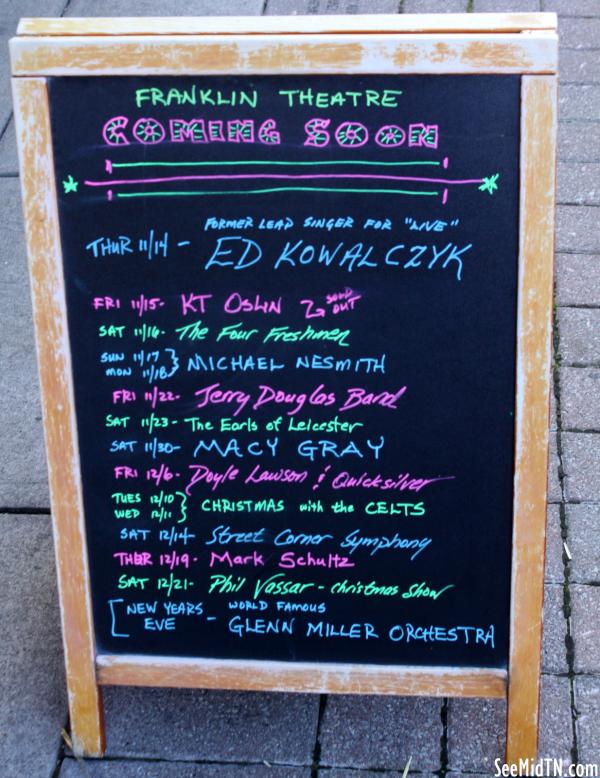 FRANKLIN THEATRE
COMING SOON
FORMER LEAD SINGER FOR "LIVE"
THUR 11/14 - ED KOWALCZYK
FRI 11/15- KT OSLIN SOLD OUT
SAT 11/16- The Four Freshmen
SUN 11/17
MON 11/18 } MICHAEL NESMITH
FRI 11/22- Jerry Douglas Band
SAT 11/23- The Earls of Leicester
SAT 11/30- MACY GRAY
FRI 12/6- Doyle Lawson & Quicksilver
TUES 12/10
WED 12/11 } CHRISTMAS with the CELTS
SAT 12/14- Street Corner Symphony
THUR 12/19- Mark Schultz
SAT 12/21- Phil Vassar - Christmas Show
NEW YEARS EVE - WORLD FAMOUS
GLENN MILLER ORCHESTRA
SeeMidTN.com